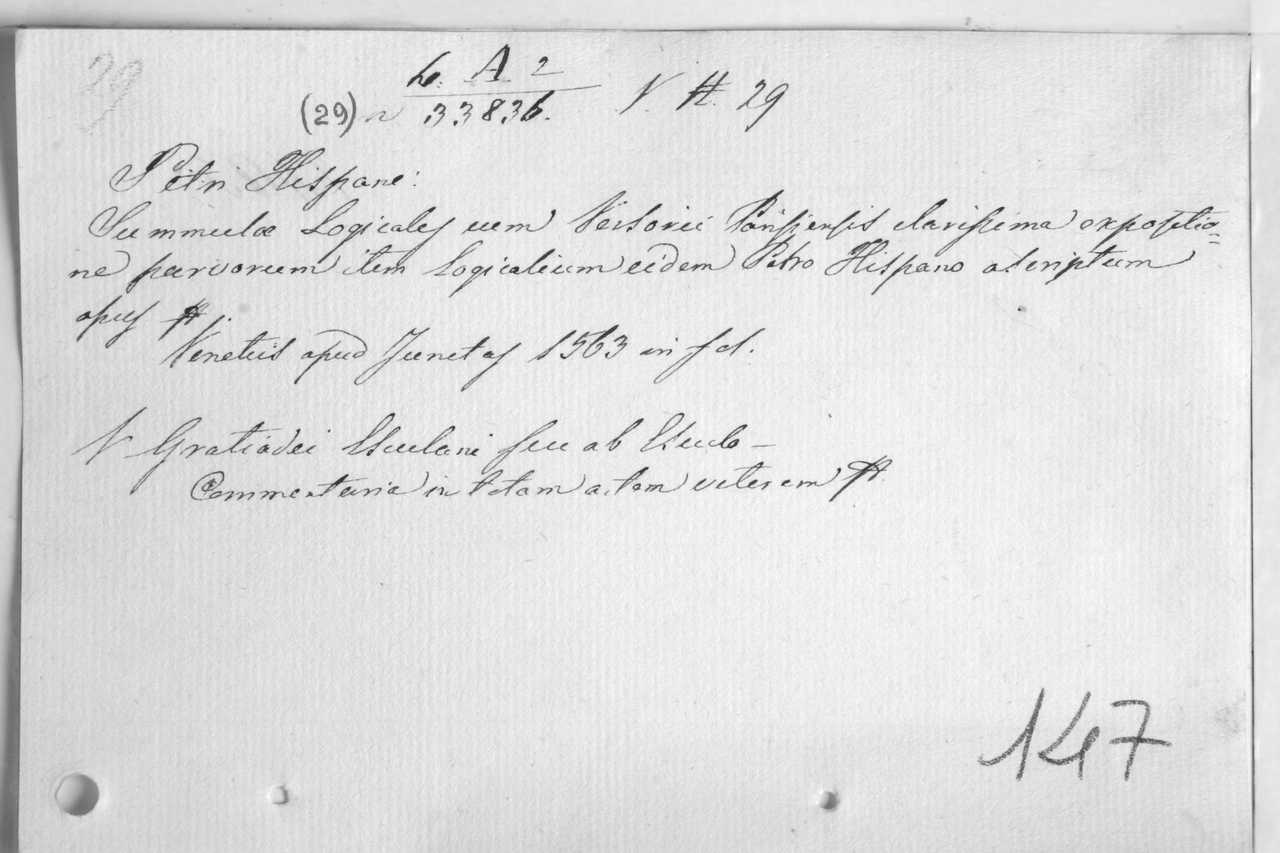 29
L. A 2
(29) 33836. V. #. 29
Petri Hispane:
Summulæ Logicales cum Versorii Parisiensis clarissima expositio=
ne parvorum item Logicalium eidem Petro Hispano ascriptum
opus #.
Venetiis apud Junctas 1563 in fol.
V Gratiadei Esculani seu ab Esculo –
Commentaria in totam artem veterem #.
147